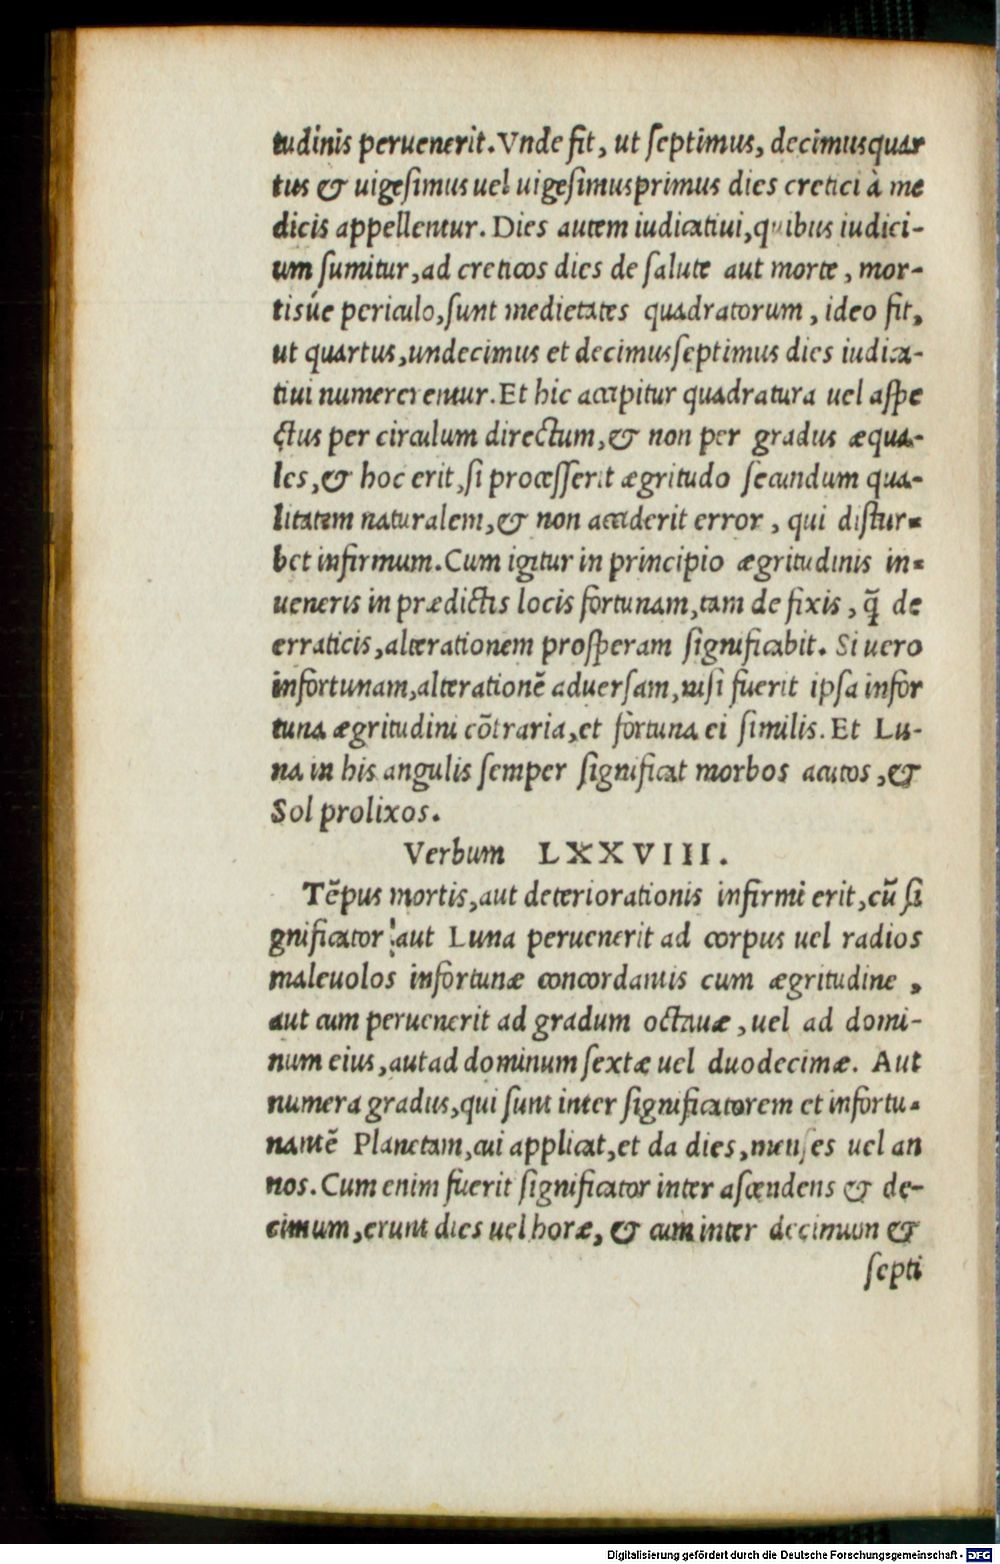 tudinis peruenerit. Vnde fit, ut ſeptimus, decimusquar
tus & uigeſimus uel uigeſimusprimus dies cretici à me
dicis appellentur. Dies autem iudicatiui, quibus iudici-
um ſumitur, ad creticos dies de ſalute aut morte, mor-
tisúe periculo, ſunt medietates quadratorum, ideo fit,
ut quartus, undecimus et decimusſeptimus dies iudica-
tiui numerentur. Et hic accipitur quadratura uel aſpe
ctus per circulum directum, & non per gradus æqua-
les, & hoc erit, ſi proceſſerit ægritudo ſecundum qua-
litatem naturalem, & non acciderit error, qui diſtur-
bet infirmum. Cum igitur in principio ægritudinis in-
ueneris in prædictis locis fortunam, tam de fixis, q̃ de
erraticis, alterationem proſperam ſignificabit. Si uero
infortunam, alterationē aduerſam, niſi fuerit ipſa infor
tuna ægritudini cōtraria, et fortuna ei ſimilis. Et Lu-
na in his angulis ſemper ſignificat morbos acutos, &
Sol prolixos.
Verbum LXXVIII.
Tēpus mortis, aut deteriorationis infirmi erit, cū ſi
gnificator aut Luna peruenerit ad corpus uel radios
maleuolos infortunæ concordantis cum ægritudine,
aut cum peruenerit ad gradum octauæ, uel ad domi-
num eius, aut ad dominum ſextæ uel duodecimæ. Aut
numera gradus, qui ſunt inter ſignificatorem et infortu-
nantē Planetam, cui applicat, et da dies, menſes uel an
nos. Cum enim fuerit ſignificator inter aſcendens & de-
cimum, erunt dies uel horæ, & cum inter decimum &
ſepti
Digitalisierung gefördert durch die Deutsche Forschungsgemeinschaft - DFG